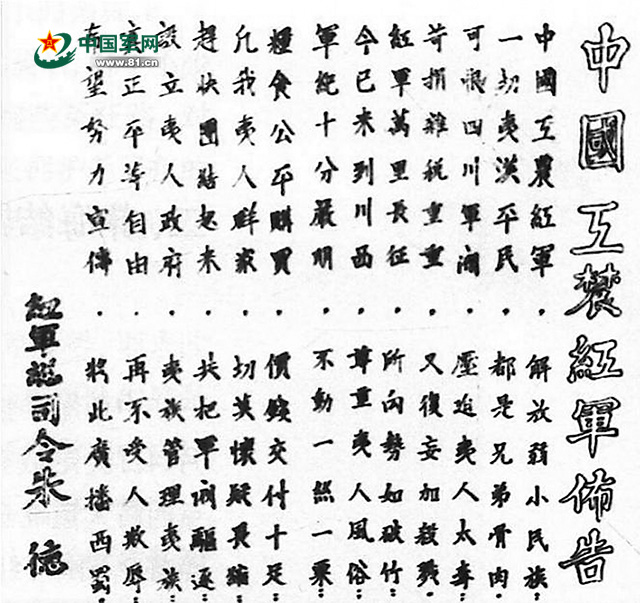 中国军网
www.81.cn
中國工農紅軍佈告
中國工農紅軍.解放弱小民族:
一切夷漢平民.都是兄弟骨肉.
可恨四川軍閥.壓迫夷人太毒:
苛捐雜稅重重.又復妄加殺戮.
紅軍萬里長征.所向勢如破竹:
今已來到川西.尊重夷人風俗:
軍紀十分嚴明.不動一絲一粟:
糧食公平購買.價錢交付十足:
凡我夷人群眾.切莫懷疑畏縮:
趕快團結起來.共把軍閥驅逐:
設立夷人政府.夷族管理夷族:
真正平等自由.再不受人欺辱:
希望努力宣傳.將此廣播西蜀.
紅軍總司令朱德